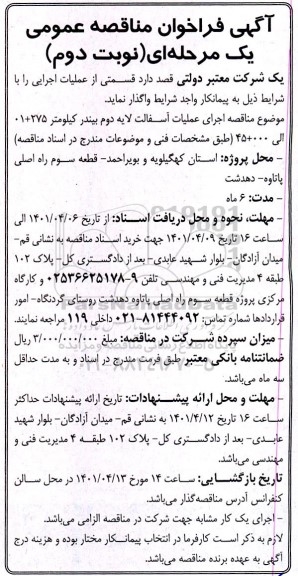 آگهی فراخوان مناقصه عمومی
یک مرحله‌ای(نوبت دوم)
یک شرکت معتبر دولتی قصد دارد قسمتی از عملیات اجرایی را با
شرایط ذیل به پیمانکار واجد شرایط واگذار نماید.
موضوع مناقصه اجرای عملیات آسفالت لایه دوم بیندر کیلومتر ۲۷۵+۰۱
الی ۰۰۰+۴۵ (طبق مشخصات فنی و موضوعات مندرج در اسناد مناقصه)
- محل پروژه: استان کهگیلویه و بویراحمد- قطعه سوم راه اصلی
پاتاوه- دهدشت
- مدت: ۶ ماه
- مهلت، نحوه و محل دریافت اسناد: از تاریخ ۱۴۰۱/۰۴/۰۶ الی
ساعت ۱۶ تاریخ ۱۴۰۱/۰۴/۰۹ جهت خرید اسناد مناقصه به نشانی قم-
میدان آزادگان- بلوار شهید عابدی- بعد از دادگستری کل- پلاک ۱۰۲
طبقه ۴ مدیریت فنی و مهندسی تلفن ۹-۰۲۵۳۶۶۲۵۱۷۸ و کارگاه
مرکزی پروژه قطعه سوم راه اصلی پاتاوه دهدشت روستای گردنگاه- امور
قراردادها شماره تماس: ۸۱۴۴۴۰۹۲-۰۲۱ داخلی ۱۱۹ مراجعه نمایند.
- میزان سپرده شرکت در مناقصه: مبلغ ۳/۰۰۰/۰۰۰/۰۰۰ ریال
ضمانتنامه بانکی معتبر طبق فرمت مندرج در اسناد و به مدت حداقل
سه ماه می‌باشد.
- مهلت و محل ارائه پیشنهادات: تاریخ ارائه پیشنهادات حداکثر
ساعت ۱۶ تاریخ ۱۴۰۱/۴/۱۲ به نشانی قم- میدان آزادگان- بلوار شهید
عابدی- بعد از دادگستری کل- پلاک ۱۰۲ طبقه ۴ مدیریت فنی و
مهندسی می‌باشد.
تاریخ بازگشایی: ساعت ۱۴ مورخ ۱۴۰۱/۰۴/۱۳ در محل سالن
کنفرانس آدرس مناقصه‌گذار می‌باشد.
- اجرای یک کار مشابه جهت شرکت در مناقصه الزامی می‌باشد.
لازم به ذکر است کارفرما در انتخاب پیمانکار مختار بوده و هزینه درج
آگهی به عهده برنده مناقصه می‌باشد.